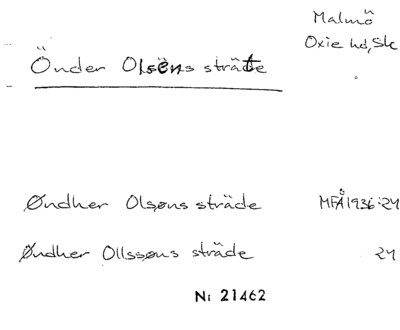 Malmö
Oxie hd, Sk
Önder Olsøns strätte
Øndher Olsøns sträde MFÅ 1936:24
Øndher Ollssøns sträde 24
Ni 21462